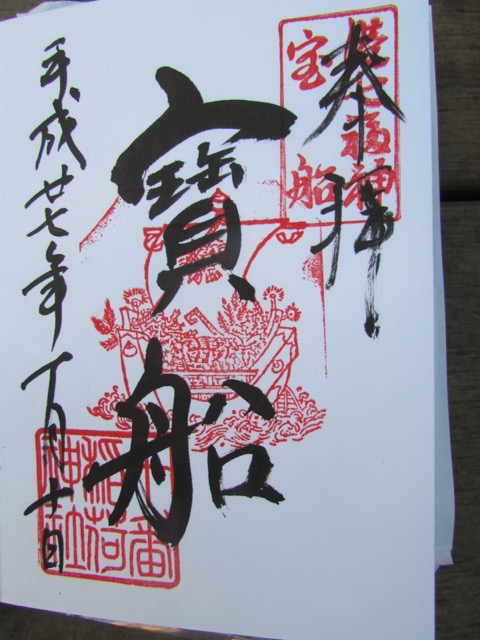 奉拝
港七福神
宝船
寳船
平成廿七年一月十日
十番
稲荷
神社